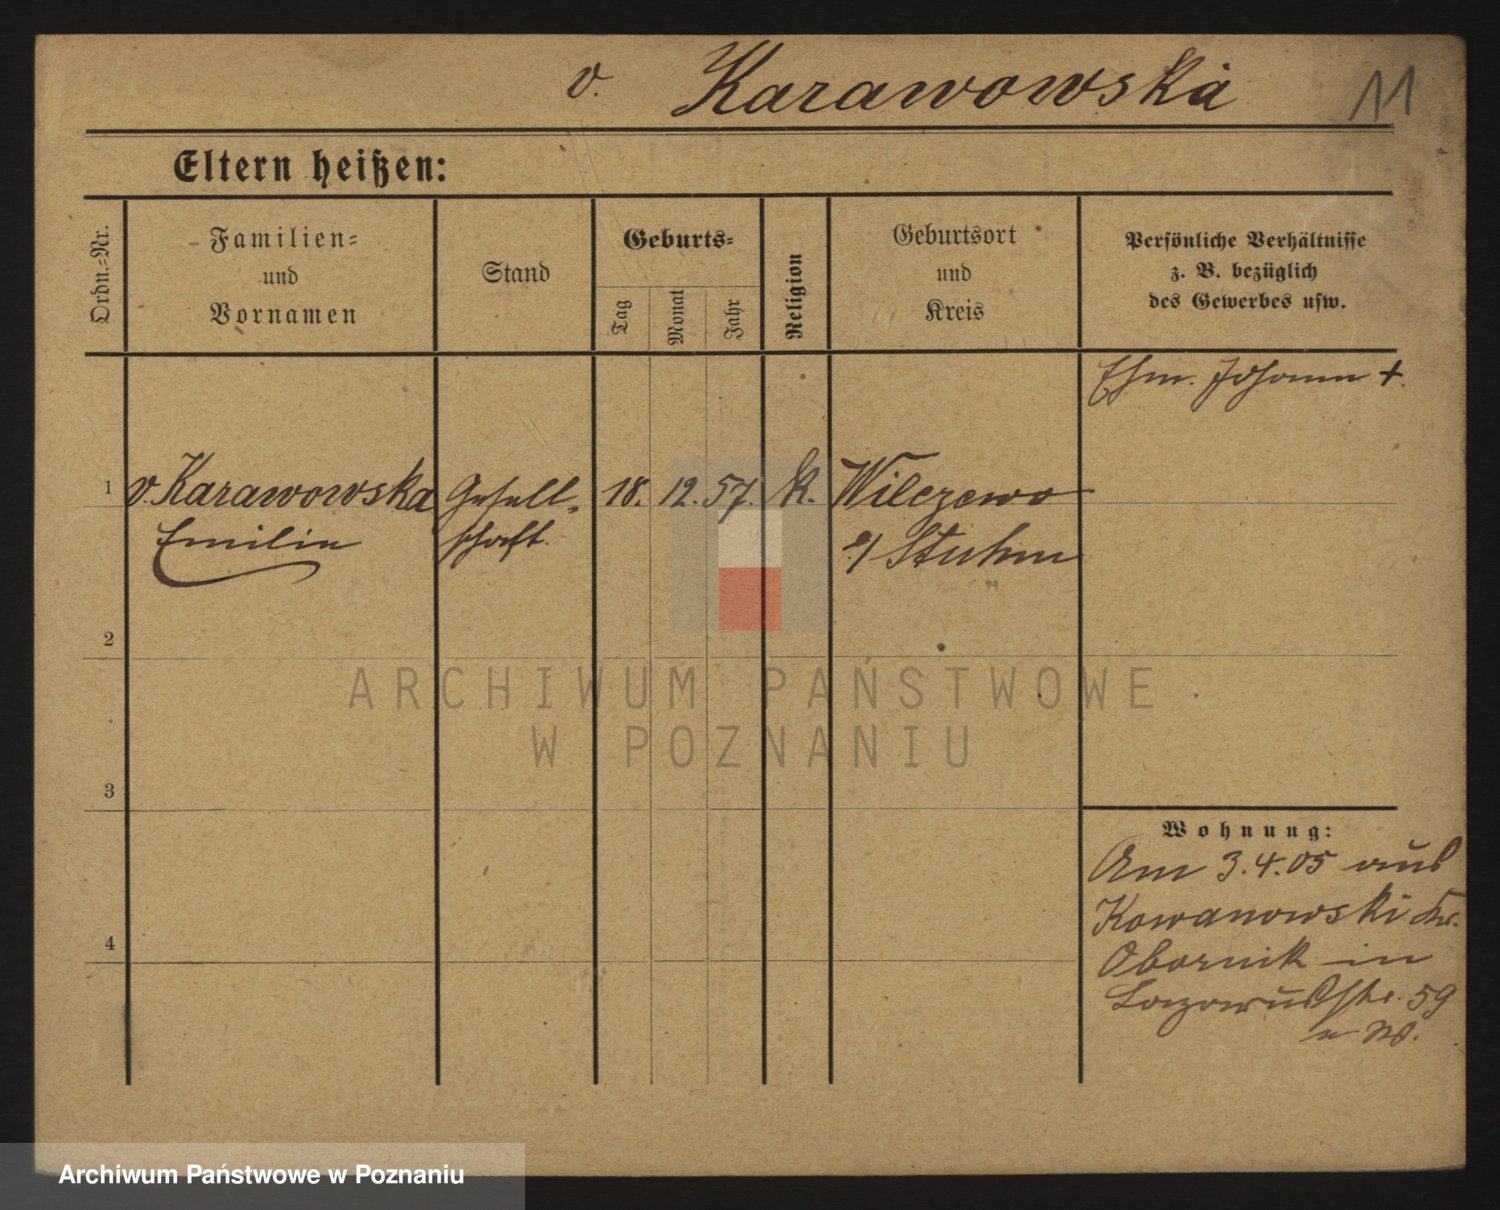 v. Karawowska
11
Eltern heißen:
Ordn.-Nr.
Familien-
und
Vornamen
Stand
Geburts-
Tag
Monat
Jahr
Religion
Geburtsort
und
Kreis
Persönliche Verhältnisse
z. B. bezüglich
des Gewerbes usw.
Ehm. Johann +.
1 v. Karawowska Gesell- 18. 12. 57. K. Wilczewo
Emilie schaft. Stuhm
2
3
4
Wohnung:
Am 3.4.05 aus
Kowanowski Kr.
Obornik in
Lazarusstr. 59
ARCHIWUM PAŃSTWOWE
W POZNANIU
Archiwum Państwowe w Poznaniu